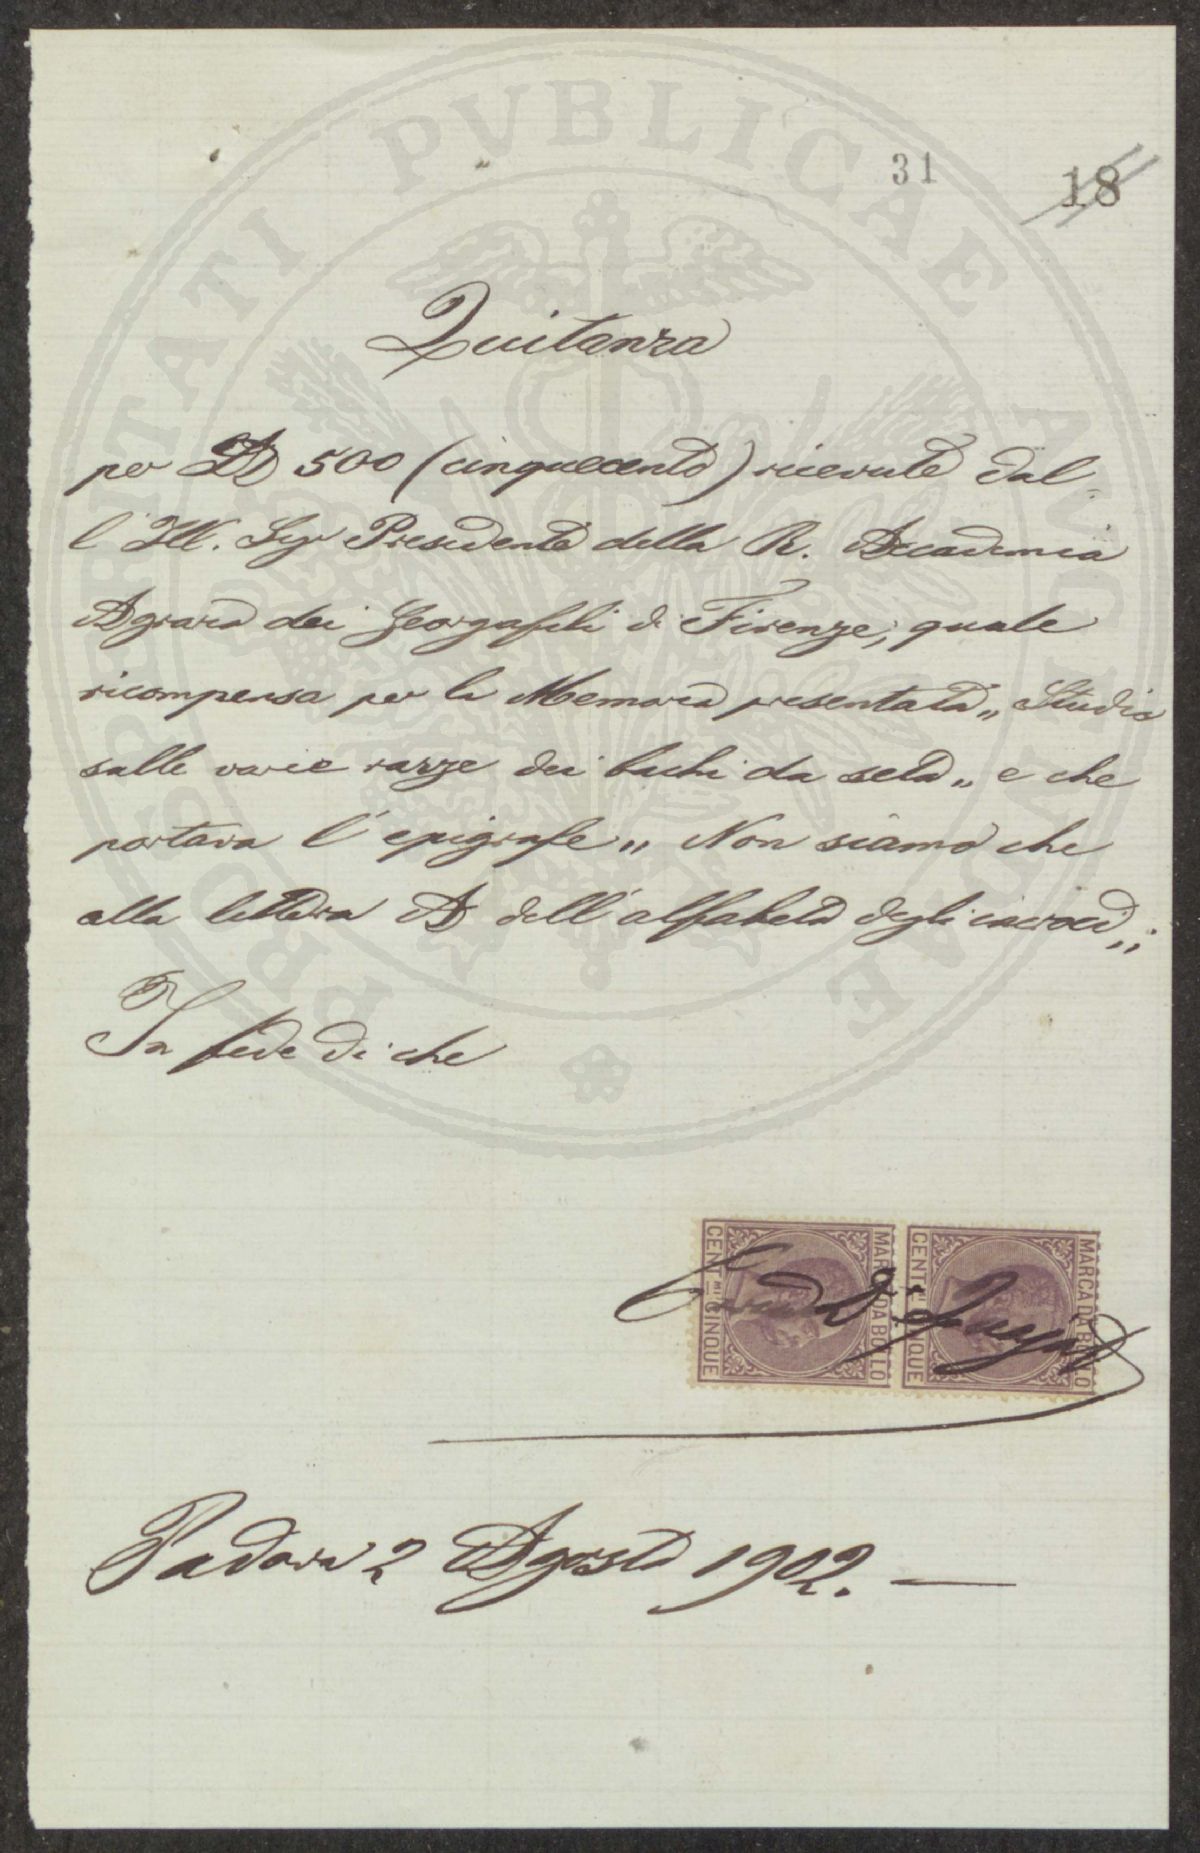 31
18
Quitanza
per L 500 (cinquecento) ricevute dal-
l'Ill. Sigr Presidente della R. Accademia
Agraria dei Georgofili di Firenze, quale
ricompensa per la Memoria presentata „ Studio
sulle varie razze dei bachi da seta „ e che
portava l'epigrafe „ Non siamo che
alla lettera A dell'alfabeto degli incroci „.
In fede di che
MARCA DA BOLLO MARCA DA BOLLO
CENT.MI CINQUE CENT.MI CINQUE
Padova 2 Agosto 1902. —
PROSPERITATI PUBLICAE AUGENDAE